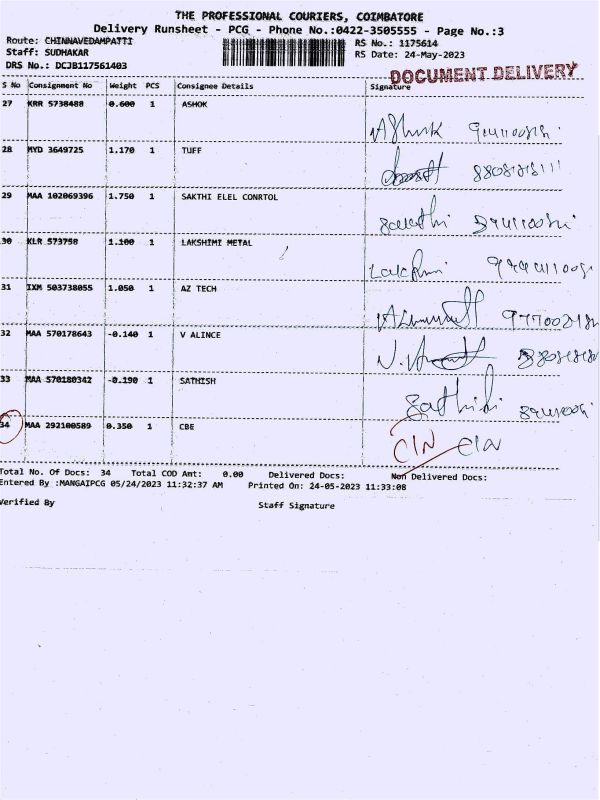 THE PROFESSIONAL COURIERS, COIMBATORE
Delivery Runsheet - PCG - Phone No.:0422-3505555 - Page No.:3
Route: CHINNAVEDAMPATTI RS No.: 1175614
Staff: SUDHAKAR RS Date: 24-May-2023
DRS No.: DCJB117561403
DOCUMENT DELIVERY
S No Consignment No Weight PCS Consignee Details Signature
27 KRR 5738488 0.600 1 ASHOK
Ashok
28 MYD 3649725 1.170 1 TUFF
29 MAA 102069396 1.750 1 SAKTHI ELEL CONRTOL
Sakthi
30 KLR 573758 1.100 1 LAKSHIMI METAL
31 IXM 503738055 1.050 1 AZ TECH
32 MAA 570178643 -0.140 1 V ALINCE
33 MAA 570180342 -0.190 1 SATHISH
34 MAA 292100589 0.350 1 CBE
CIN CIN
Total No. Of Docs: 34 Total COD Amt: 0.00 Delivered Docs: Non Delivered Docs:
Entered By :MANGAIPCG 05/24/2023 11:32:37 AM Printed On: 24-05-2023 11:33:08
Verified By Staff Signature